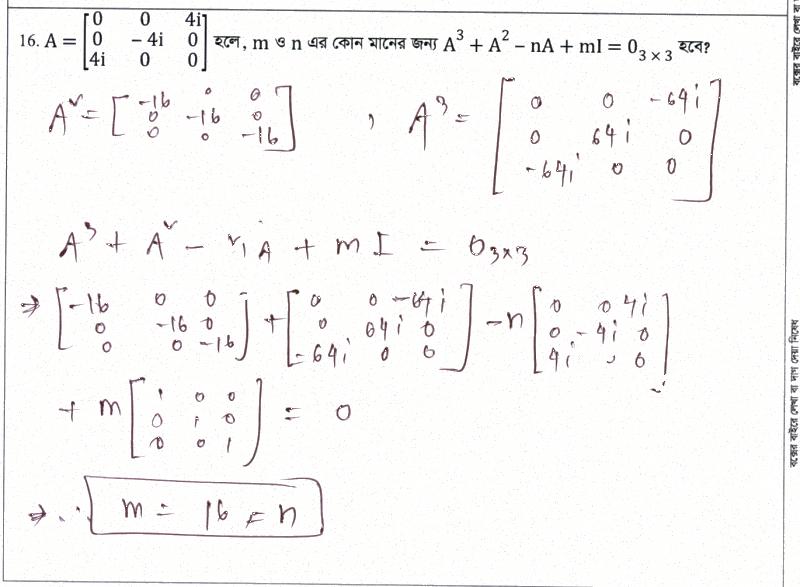 16. A = [0 0 4i
0 - 4i 0
4i 0 0] হলে, m ও n এর কোন মানের জন্য A³ + A² − nA + mI = 0₃ × ₃ হবে?
A² = [-16 0 0
0 -16 0
0 0 -16] , A³ = [0 0 -64i
0 64i 0
-64i 0 0]
A³ + A² − nA + mI = 0₃ₓ₃
⇒ [-16 0 0
0 -16 0
0 0 -16] + [0 0 -64i
0 64i 0
-64i 0 0] − n [0 0 4i
0 -4i 0
4i 0 0]
+ m [1 0 0
0 1 0
0 0 1] = 0
⇒ ∴ m = 16 = n
বক্সের বাইরে লেখা বা দাগ দেয়া নিষেধ